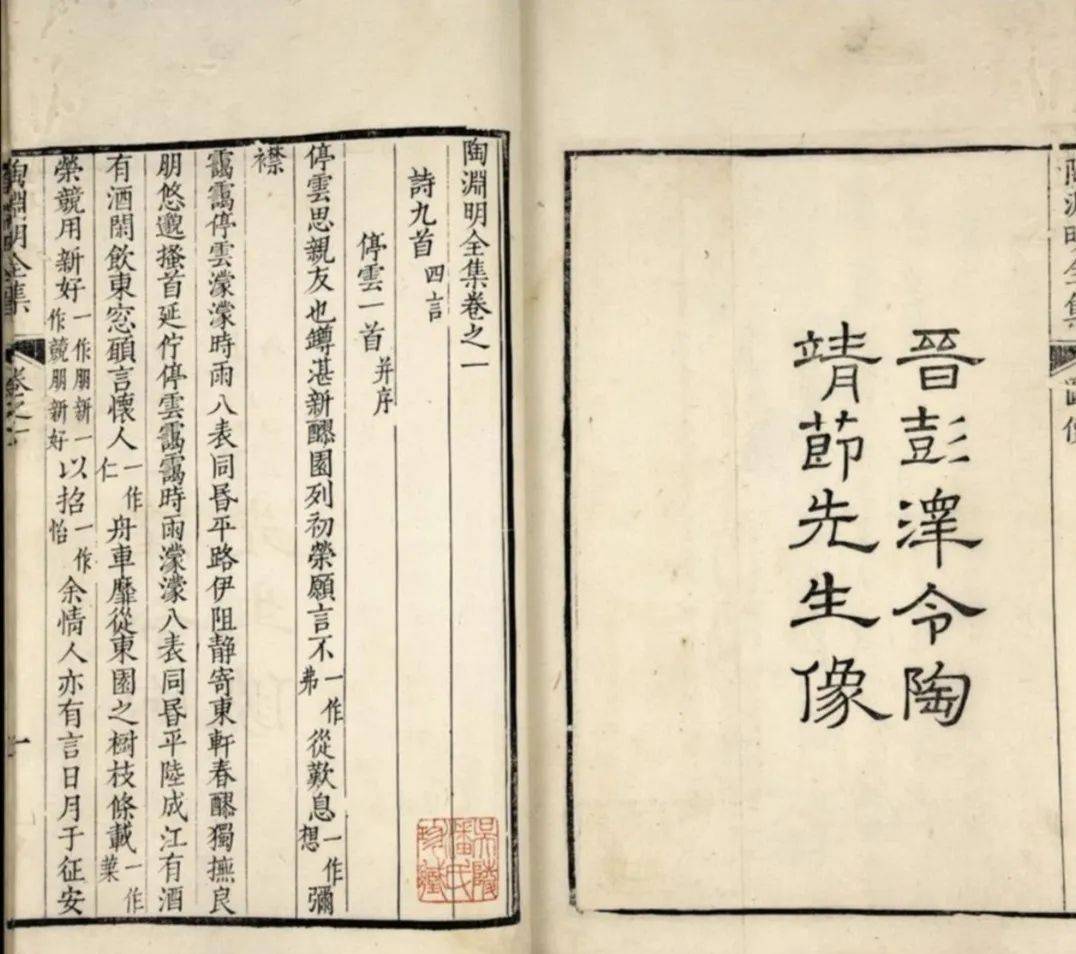 陶淵明全集
晉彭澤令陶
靖節先生像
陶淵明全集卷之一
詩九首 四言
停雲一首 并序
停雲思親友也罇湛新醪園列初榮願言不一作弗從歎息一作想彌
襟
靄靄停雲濛濛時雨八表同昬平路伊阻静寄東軒春醪獨撫良
朋悠邈搔首延佇停雲靄靄時雨濛濛八表同昬平陸成江有酒
有酒閑飲東窓願言懷人一作仁舟車靡從東園之樹枝條載一作葉
榮競用新好一作朋新一作競朋新好以招一作怡余情人亦有言日月于征安
陶淵明全集 卷之一 一
陵
潘氏
珍藏